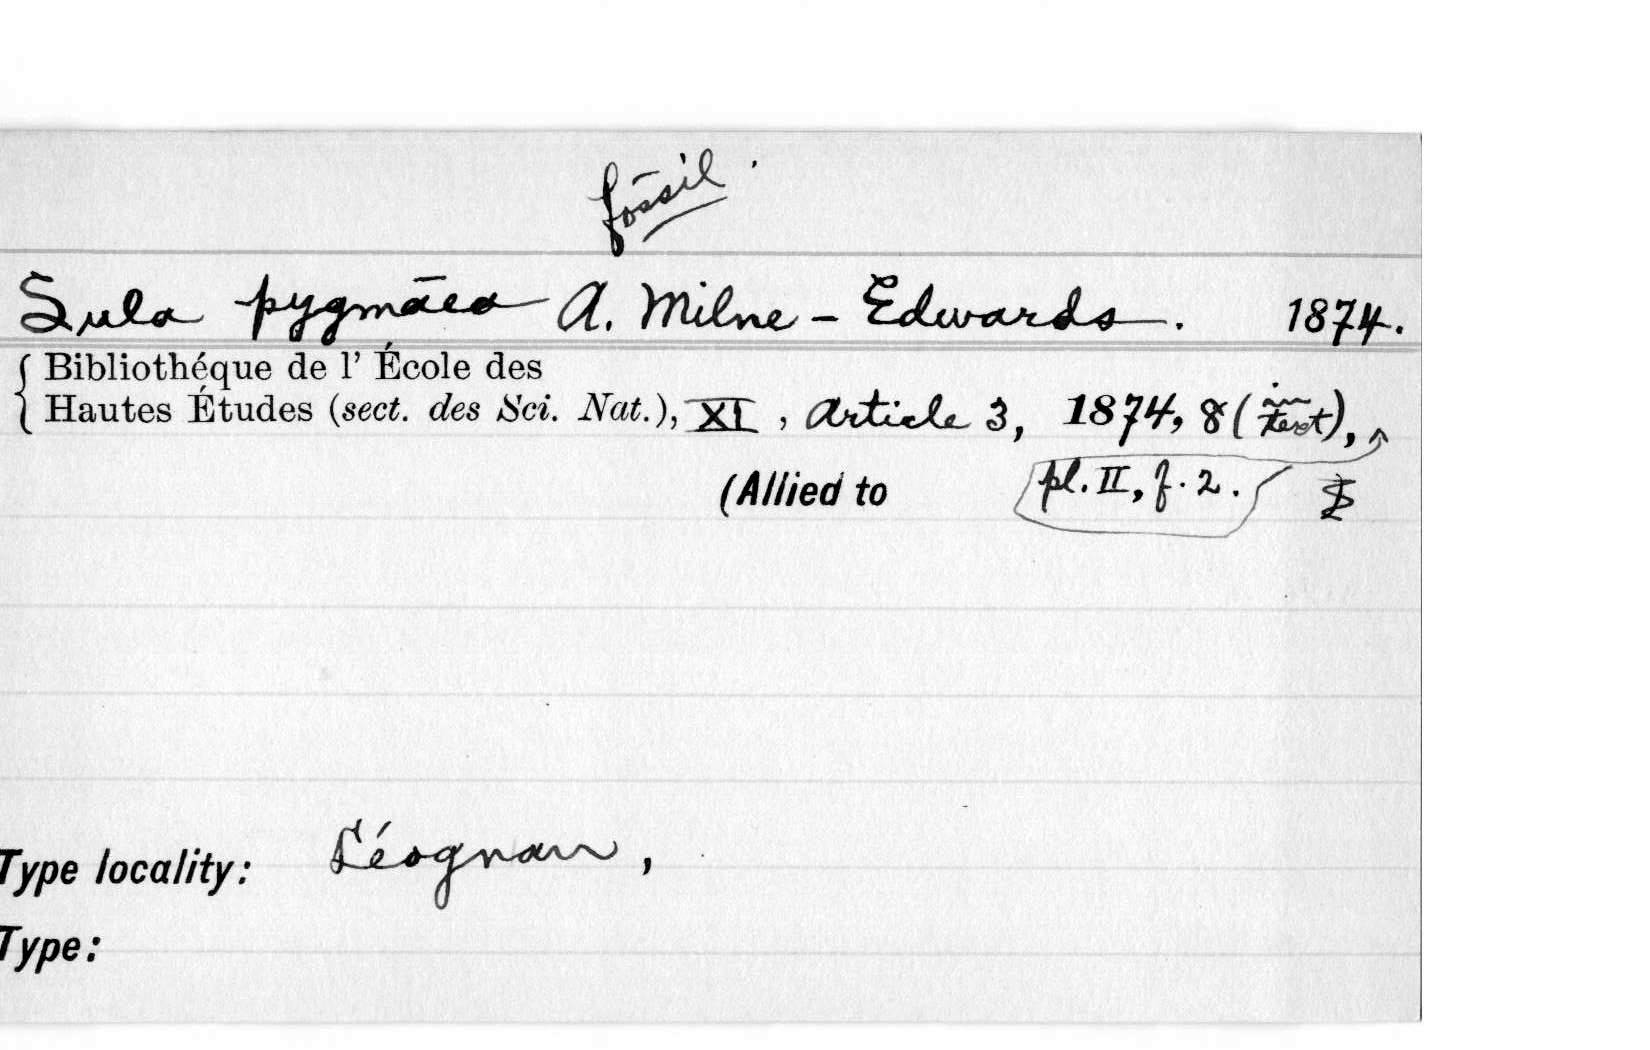 fossil.
Sula pygmaea A. Milne-Edwards. 1874.
{ Bibliothéque de l' École des
Hautes Études (sect. des Sci. Nat.), XI, Article 3, 1874, 8 (in text),
(Allied to pl. II, f. 2.
Type locality: Léognan,
Type: